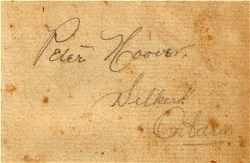 Peter Hoover.
Selkirk
Ontario